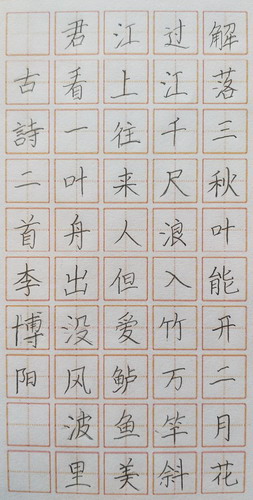 解落三秋叶能开二月花
过江千尺浪入竹万竿斜
江上往来人但爱鲈鱼美
君看一叶舟出没风波里
古詩二首李博阳